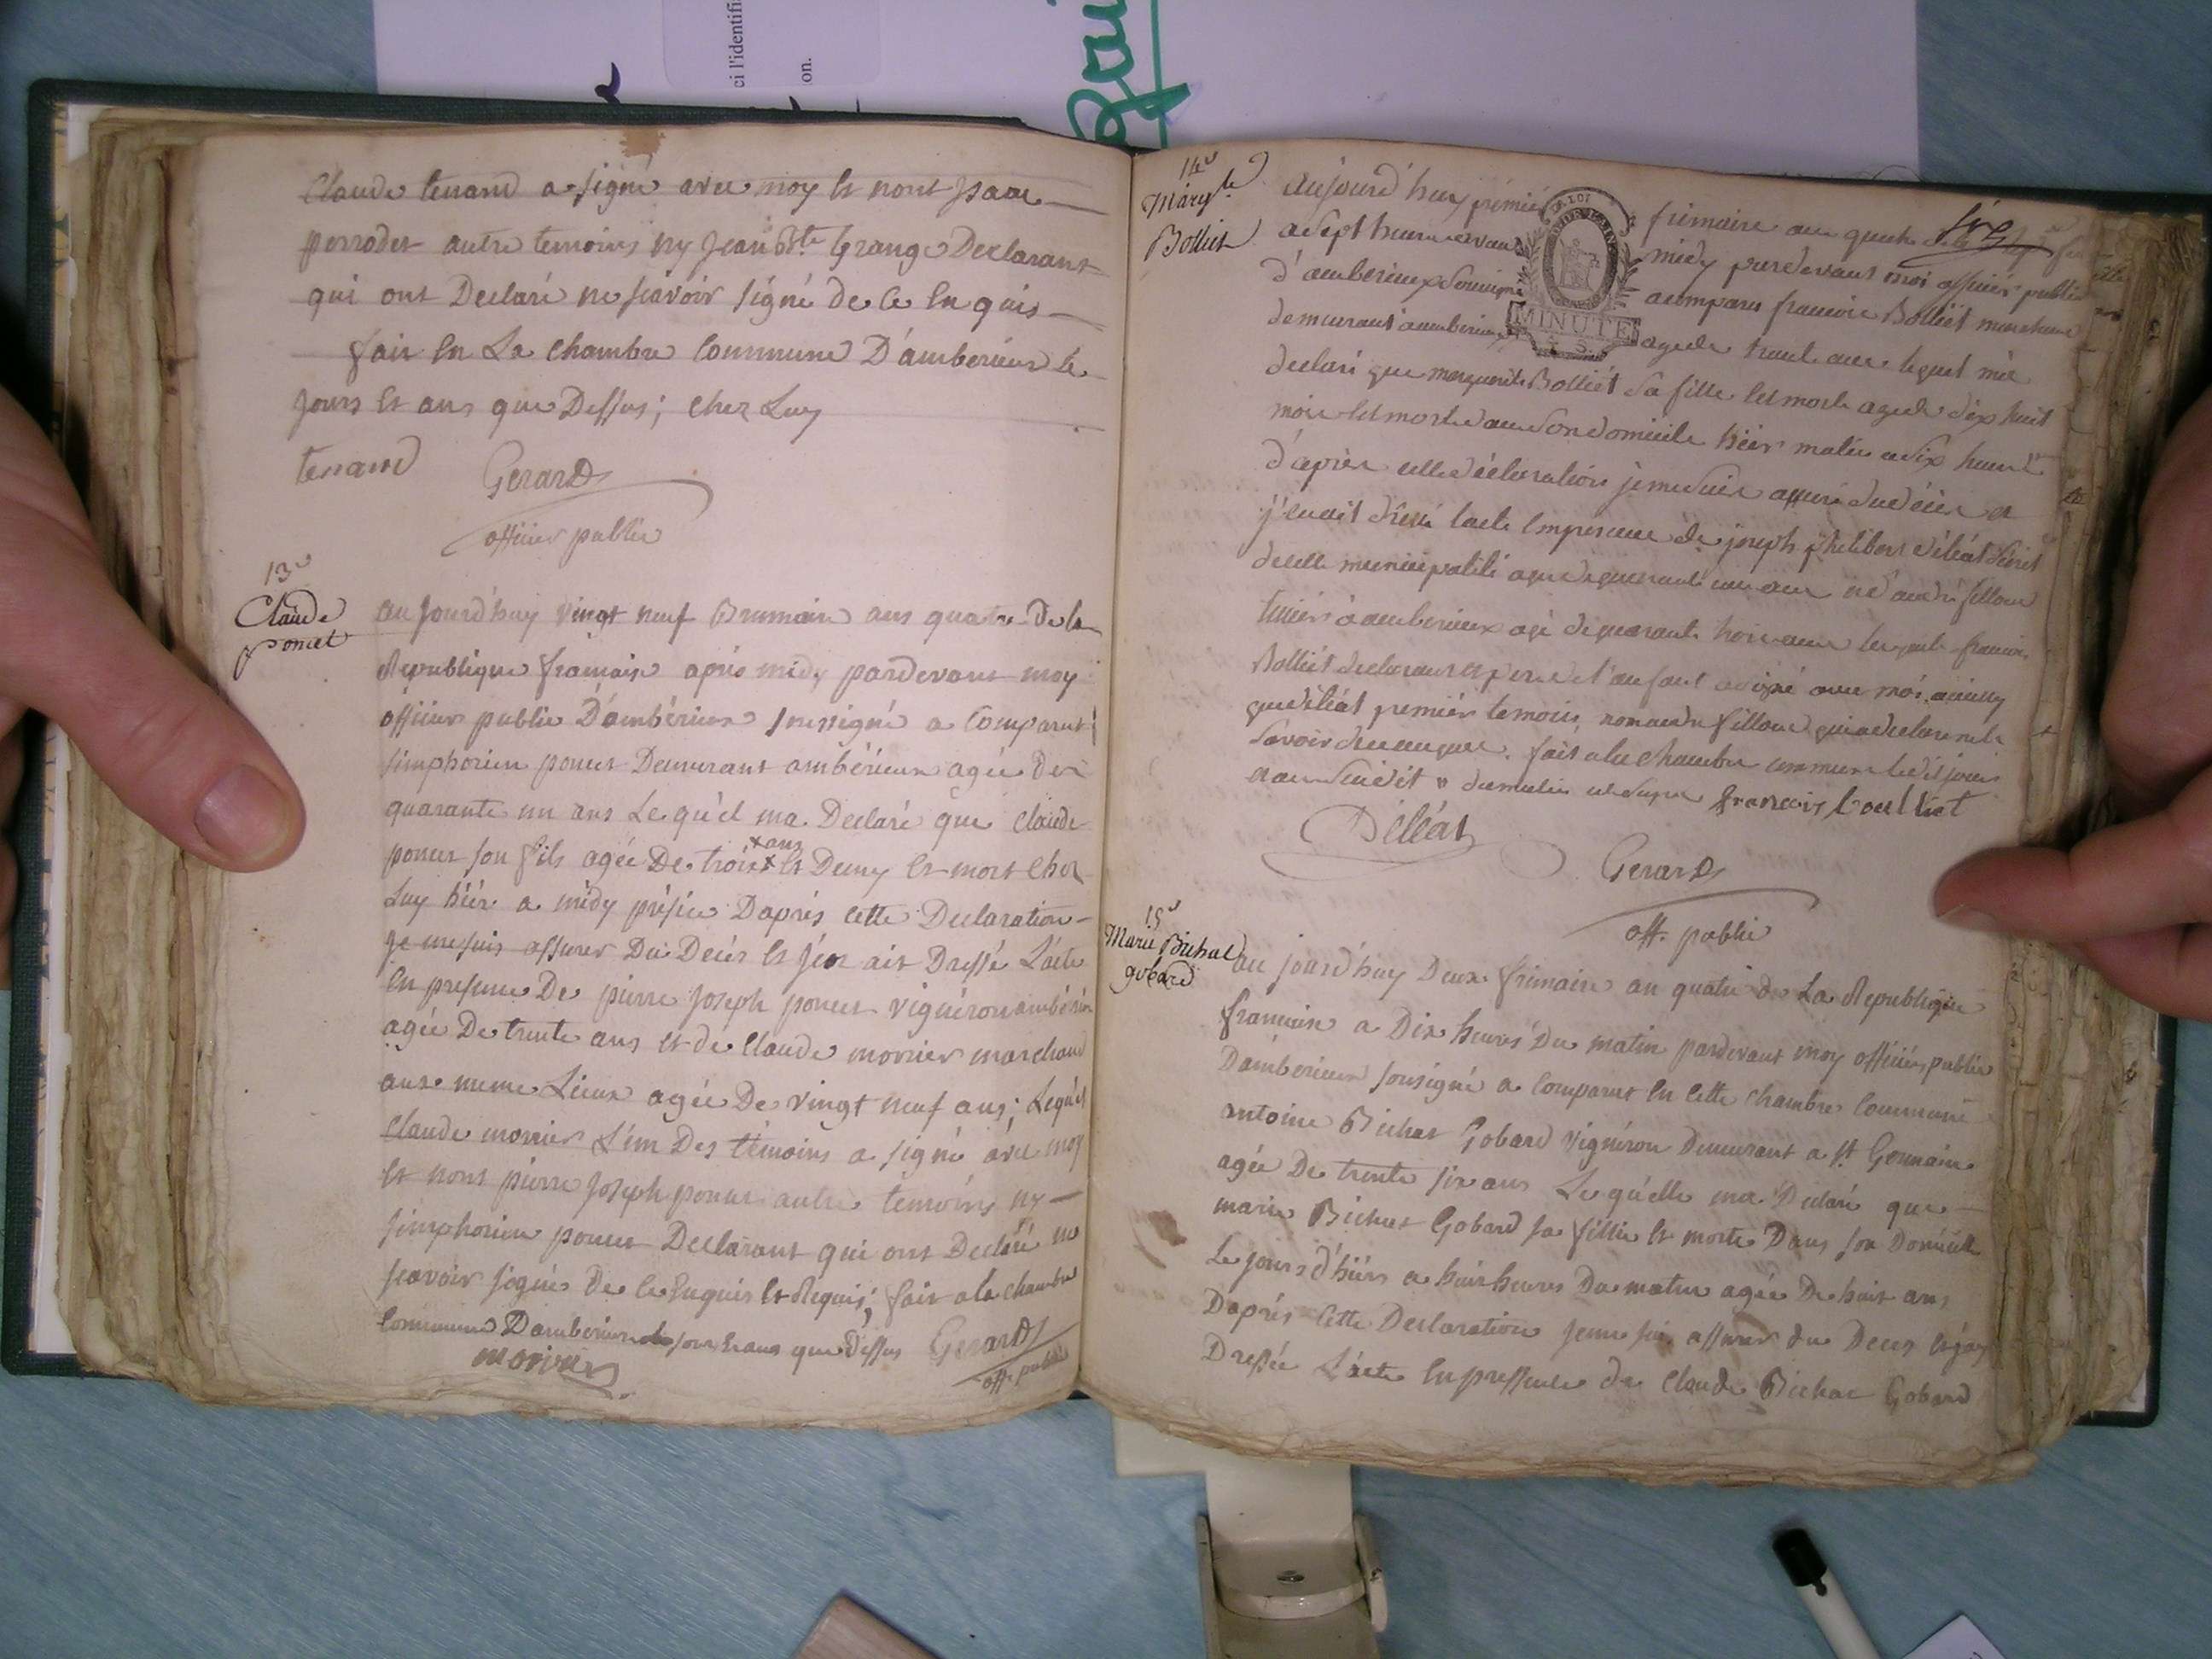 ci l'identifi
on.
Claude tenand a signé avec moy et nont Isaac
perrodet autre temoins ny Jean Bte Grange Declarant
qui ont Declaré ne scavoir signé de ce Enquis
fait En La chambre Commune D'amberieux le
Jours et ans que Dessus; chez Luy
tenand Gerard
officier public
13e
Claude
poncet
au Jourd'huy vingt neuf Brumaire ans quatre De la
Republique francaise aprés midy pardevant moy
officier public D'ambérieux soussigné a Comparut
simphorien poncet Demeurant ambérieux agée de
quarante un ans Le qu'el ma Declaré que Claude
poncet son fils agée De trois et Demy Et mort chez
ans
Luy hiér a midy présice Daprés cette Declaration
Je me suis assurer Du Decés et J'en ait Dressé L'acte
En presence De pierre Joseph poncet vigneron ambérieux
agée De trente ans et de Claude morrier marchand
aux meme Lieux agée De vingt neuf ans; Lequel
Claude morrier L'un Des témoins a signé avec moy
et nont pierre Joseph poncet autre temoins ny
simphorien poncet Declarant qui ont Declaré ne
scavoir signés De ce Enquis et Requis; fait a la chambre
Commune Damberieux le jour et ans que Dessus Gerard
morrier off. public
14e
Margte
Bolliet
aujourd'huy prémié frimaire an quatre
a sept heure avant midy pardevant moi officiér public
d'amberieux soussigné acomparu francois Bolliét
demeurant amberieux agé de trente ans lequel m'a
LA LOI
MINUTE
declaré que marguerite Bolliét sa fille est morte agée de dix huit
mois est morte dans son domicile hiér matin a six heure
d'aprés cette déclaration je me suis assuré du décés et
j'en ait dréssé lacte En presence de joseph philibert déléat
de cette municipalité agé de quarante un ans et d'andré filloud
a amberieux agé de quarante trois ans lequel francois
Bolliét declarant et pere de l'enfant a signé avec moi
que déléat premiér temoin non andré filloud qui a declaré ne le
savoir de ce enquis. fait a la chambre commune le dit jour
et an susdit francois boulliet
Déléat
Gerard
off. public
15e
Marie Bichat
gobard
au jourd'huy Deux frimaire an quatre de La Republique
francaise a Dix heures Du matin pardevant moy officiér public
Damberieux sousigné a Comparut En cette chambre Commune
antoine Bichat Gobard vignéron Demeurant a St Germain
agée De trente six ans Le qu'elle ma Declaré que
marie Bichat Gobard sa fillie Et morte Dans son Domicille
Le jours d'hiérs a huit heures Du matin agée De huit ans
Daprés Cette Declaration Jeme suis assurer du Deces et j'ay
Dressée L'acte En pressence de Claude Bichat Gobard